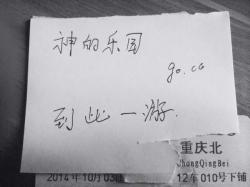 神的乐园
go.co
到此一游.
重庆北
ChongQingBei
2014年10月03日
12车010号下铺